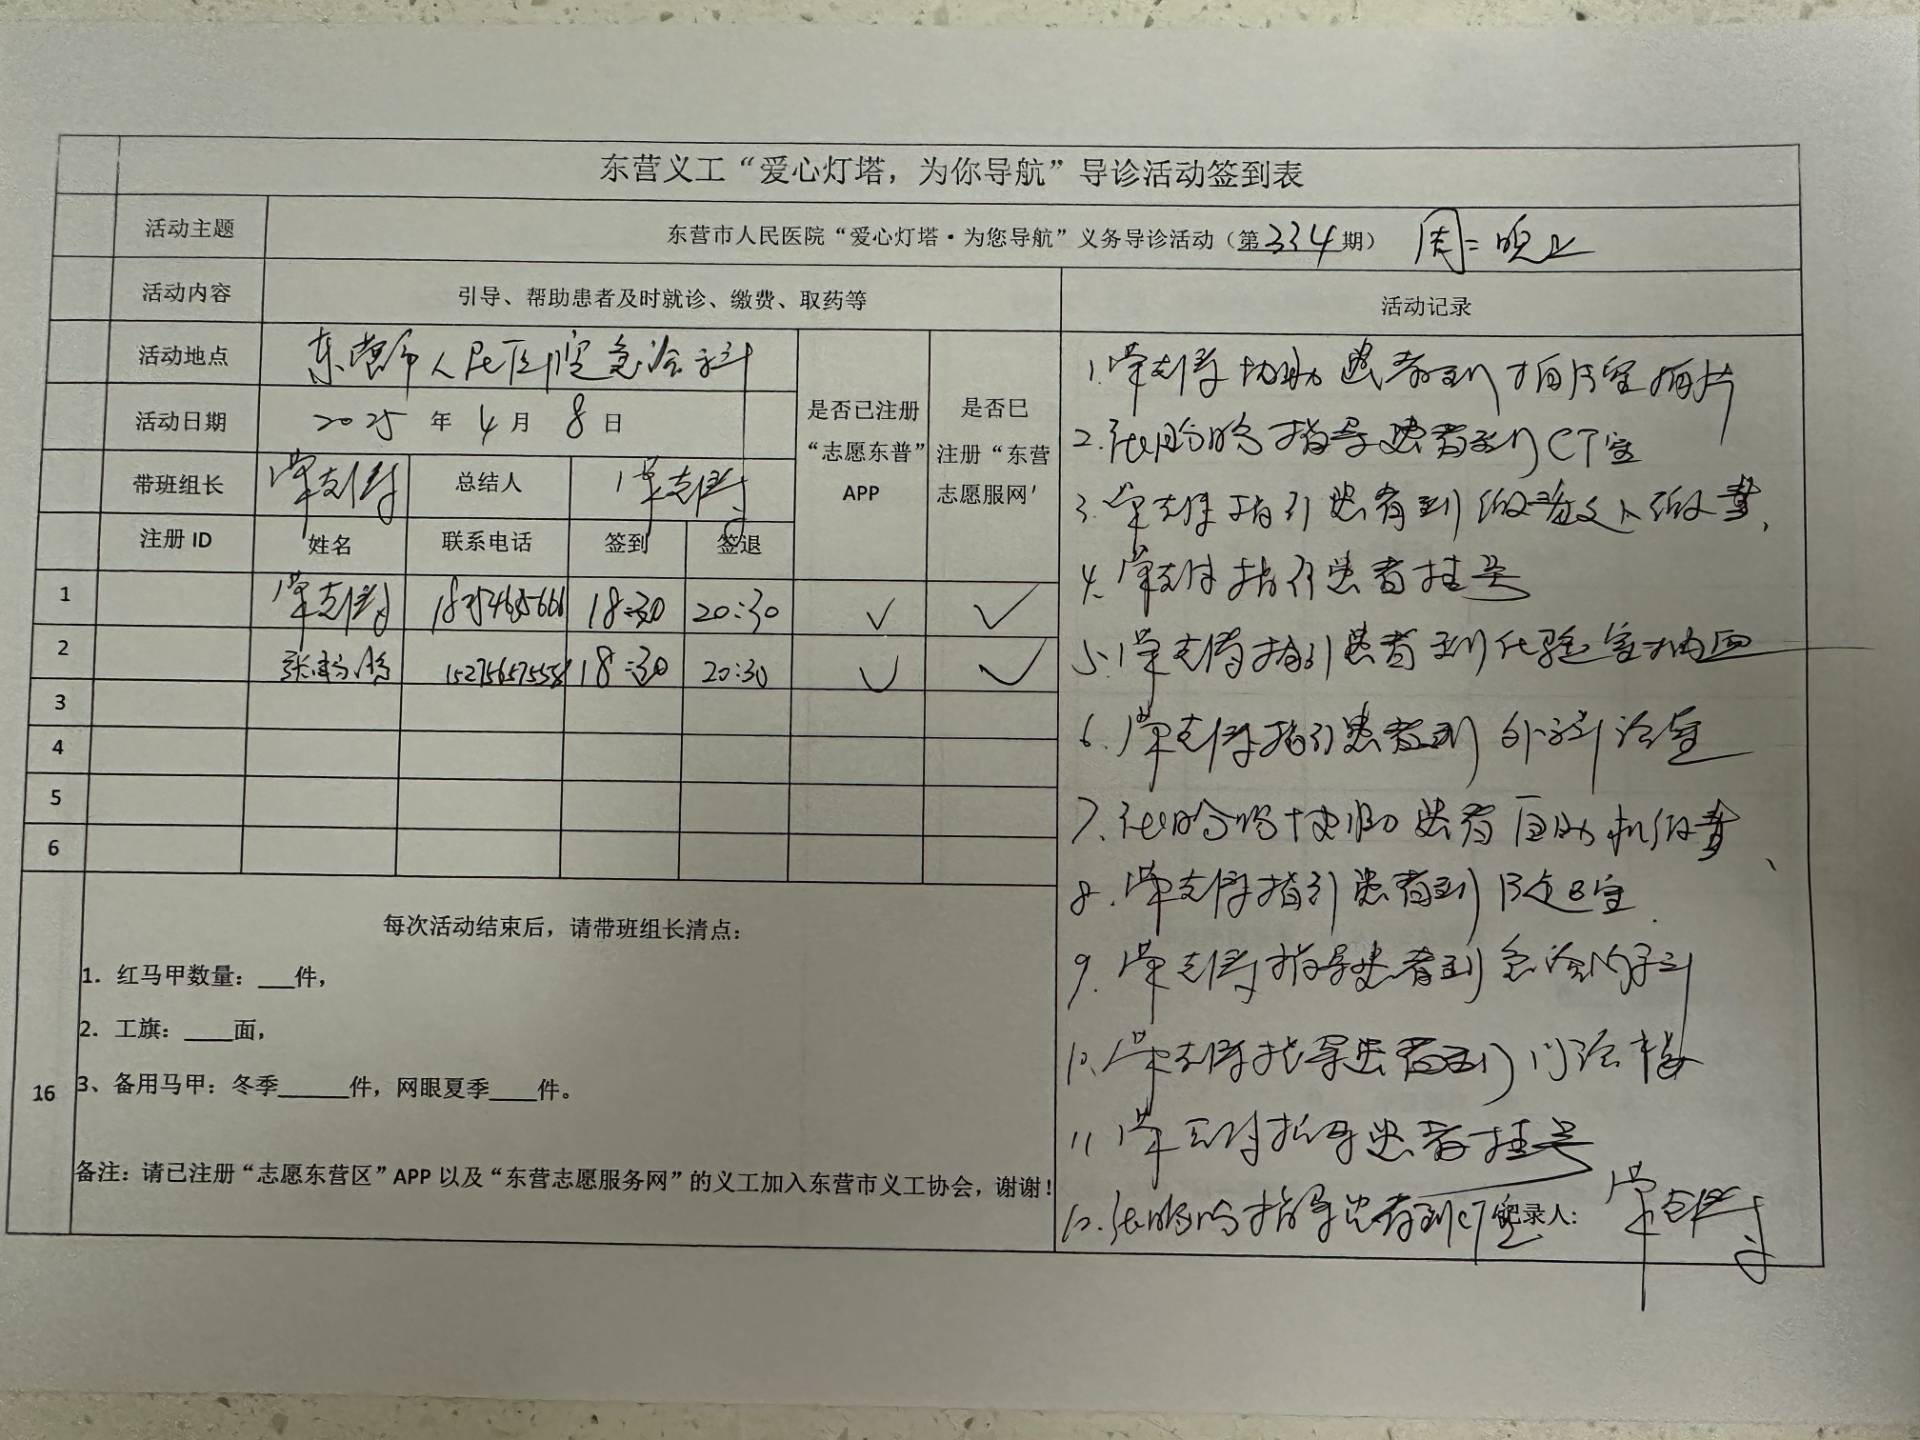 东营义工“爱心灯塔，为你导航”导诊活动签到表
活动主题 东营市人民医院“爱心灯塔·为您导航”义务导诊活动（第334期） 周二晚上
活动内容 引导、帮助患者及时就诊、缴费、取药等 活动记录
活动地点 东营市人民医院急诊科
活动日期 2025 年 4 月 8 日
是否已注册“志愿东普”APP
是否已注册“东营志愿服网'
带班组长 总结人
注册 ID 姓名 联系电话 签到 签退
1 18:30 20:30 ✓ ✓
2 18:30 20:30 ✓ ✓
3
4
5
6
16
每次活动结束后，请带班组长清点：
1. 红马甲数量：___件，
2. 工旗：____面，
3、备用马甲：冬季______件，网眼夏季____件。
备注：请已注册“志愿东营区”APP 以及“东营志愿服务网”的义工加入东营市义工协会，谢谢！
1. 协助患者到拍片室拍片
2. 指导患者到CT室
3. 指引患者到缴费
4. 指引患者挂号
5. 指引患者到化验室抽血
6. 指引患者到外科诊室
7. 协助患者自助机缴费、
8. 指引患者到B超室.
9. 指导患者到急诊内科
10. 指导患者到门诊楼
11 指导患者挂号
12. 指导患者到CT室
记录人: